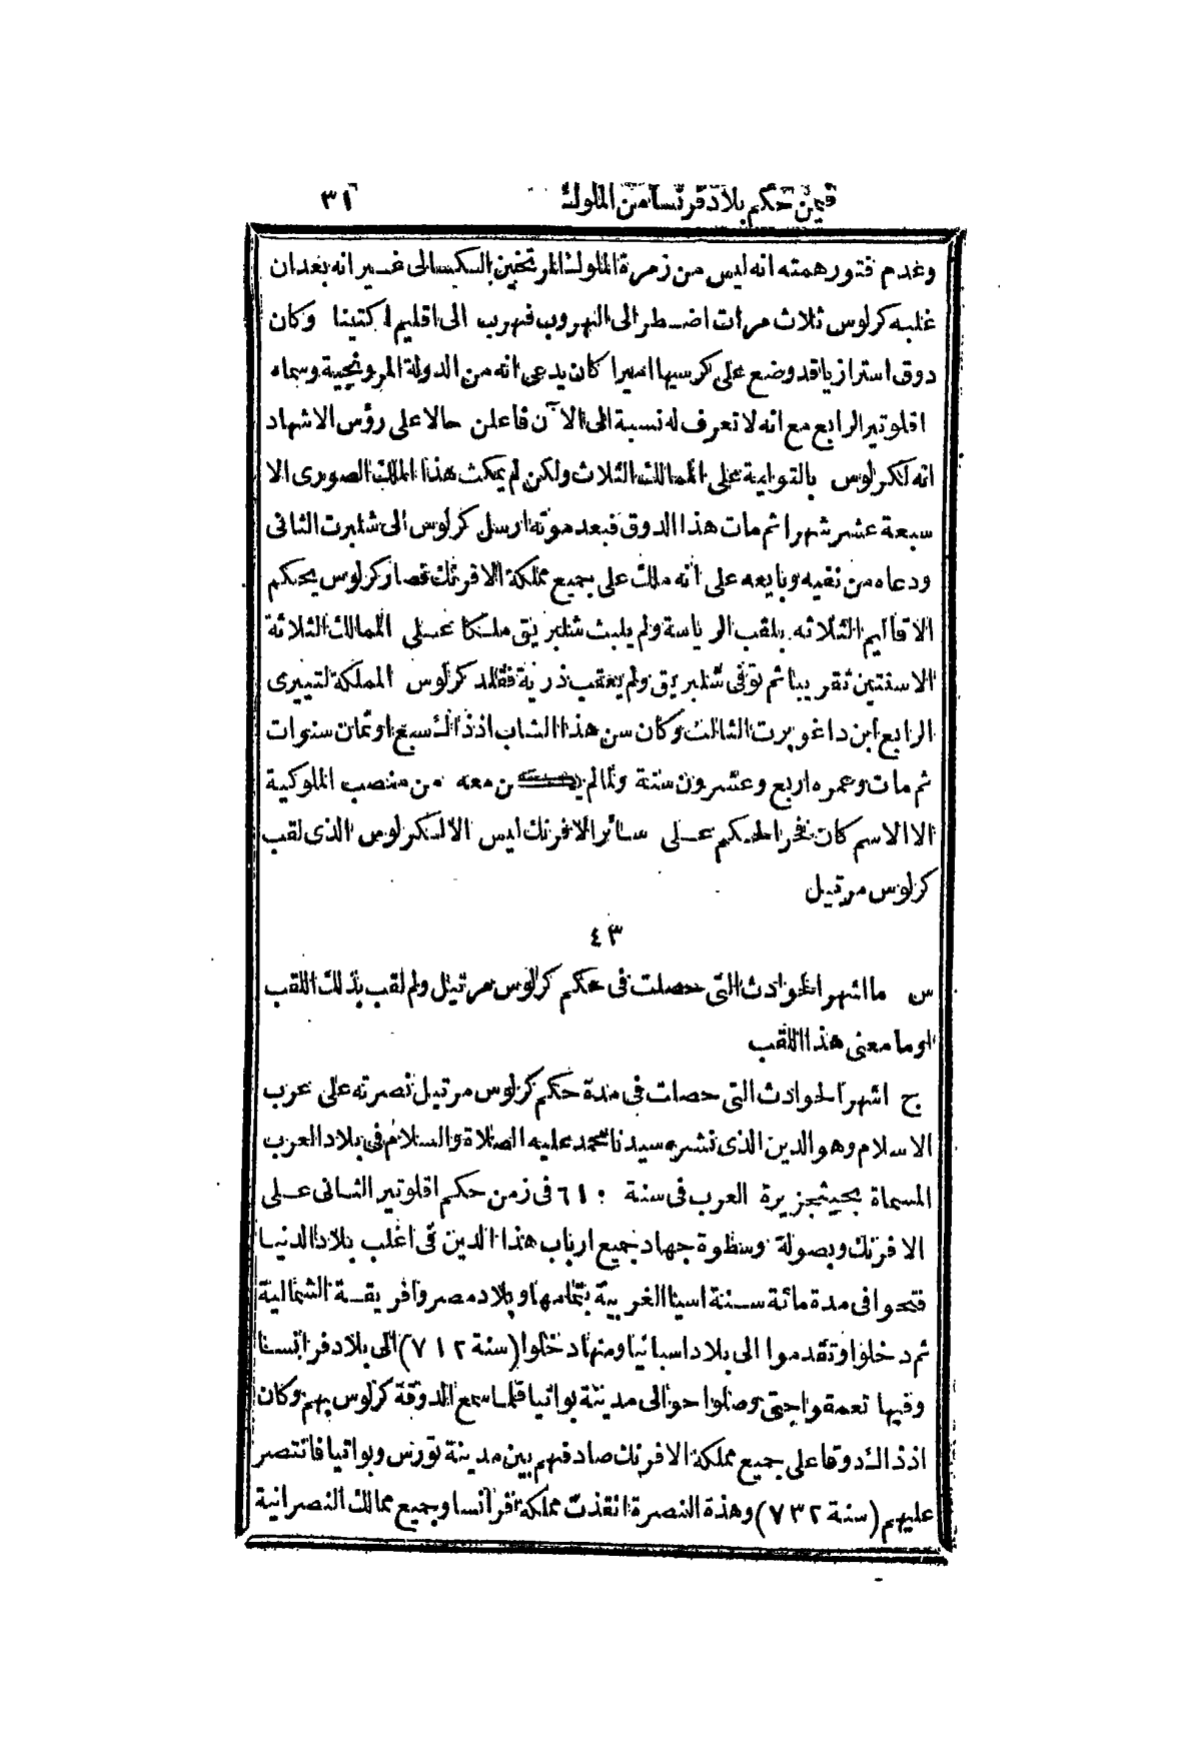 فيمن حكم بلاد فرنسا من الملوك ٣١
وعدم فتورهمته انه ليس من زمرة الملوك المرتخين بالكسالى غير انه بعد ان
غلبه كرلوس ثلاث مرات اضطر الى الهروب فهرب الى اقليم اكتينا وكان
دوق استرازيا قد وضع على كرسيها اميرا كان يدعى انه من الدولة المرونجية وسماه
اقلوتير الرابع مع انه لا تعرف له نسبة الى الآن فاعلن حالا على رؤس الاشهاد
انه لكرلوس بالتولية على الممالك الثلاث ولكن لم يمكث هذا الملك الصورى الا
سبعة عشر شهرا ثم مات هذا الدوق فبعد موته ارسل كرلوس الى شلبرت الثانى
ودعاه من نفيه وبايعه على انه ملك على جميع مملكة الافرنك فصار كرلوس يحكم
الاقاليم الثلاثه بلقب الرياسة ولم يلبث شلبريق ملكا على الممالك الثلاثة
الا سنتين تقريبا ثم توفى شلبريق ولم يعقب ذرية فقلد كرلوس المملكة لتييرى
الرابع ابن داغوبرت الثالث وكان سن هذا الشاب اذ ذاك سبع او ثمان سنوات
ثم مات وعمره اربع وعشرون سنة ولما لم ن معه من منصب الملوكية
الا الاسم كان نفرا الحكم على سائر الافرنك ليس الا لكرلوس الذى لقب
كرلوس مرتيل
٤٣
س ما اشهر الحوادث التى حصلت فى حكم كرلوس مرتيل ولم لقب بذلك اللقب
او ما معنى هذا اللقب
ج اشهر الحوادث التى حصلت فى مدة حكم كرلوس مرتيل نصرته على عرب
الاسلام وهو الدين الذى نشره سيدنا محمد عليه الصلاة والسلام فى بلاد العرب
المسماة بجزيرة العرب فى سنة ٦١٠ فى زمن حكم اقلوتير الثانى على
الافرنك وبصولة وسطوة جهاد جميع ارباب هذا الدين فى اغلب بلاد الدنيا
فتحوا فى مدة مائة سنة اسيا الغربية بتمامها وبلاد مصر وافريقة الشمالية
ثم دخلوا وتقدموا الى بلاد اسبانيا ومنها دخلوا (سنة ٧١٢) الى بلاد فرانسا
وفيها حتى وصلوا حوالى مدينة بواتيا فلما سمع الدوقة كرلوس بهم وكان
اذ ذاك دوقا على جميع مملكة الافرنك صادفهم بين مدينة تورس وبواتيا فانتصر
عليهم (سنة ٧٣٢) وهذة النصرة انقذت مملكة فرانسا وجميع ممالك النصرانية